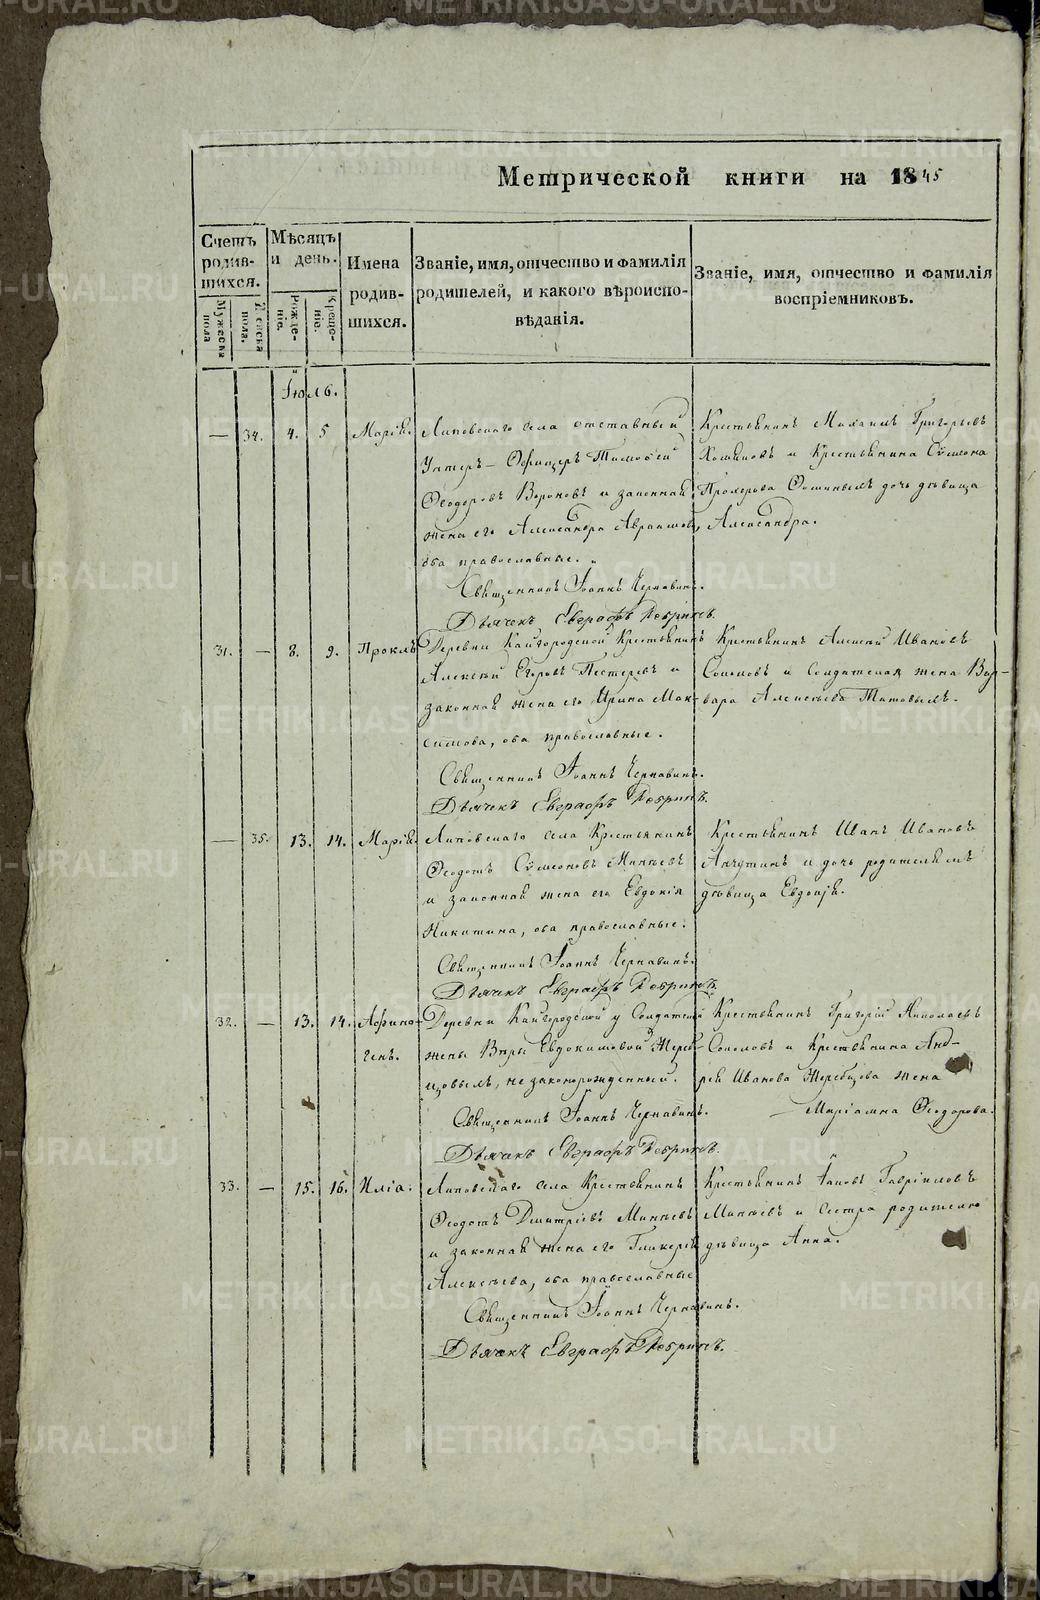 Метрической книги на 1845
Счетъ родившихся.
Мужеска пола
Женска пола.
Мѣсяцъ и день.
Рожденіе.
Крещеніе.
Имена родившихся.
Званіе, имя, отчество и фамилія
родителей, и какого вѣроиспо-
вѣданія.
Званіе, имя, отчество и фамилія
воспріемниковъ.
Іюль.
— 34. 4. 5 Марія.
Липовскаго села отставный
Унтеръ-Офицеръ Тимоѳей
Ѳеодоровъ Вороновъ и законная
жена его Александра Авраамова,
оба православные.
Священникъ Іоаннъ Чернавинъ.
Дьячекъ Евграфъ Ребринъ.
Крестьянинъ Михаилъ Григорьевъ
и Крестьянина Сѵмеона
Прохорова дочь дѣвица
Александра.
31. — 8. 9. Проклъ
Деревни Кайгородской Крестьянинъ
Алексѣй Егоровъ Пестеревъ и
законная жена его Ирина Мак-
симова, оба православные.
Священникъ Іоаннъ Чернавинъ.
Дьячекъ Евграфъ Ребринъ.
Крестьянинъ Алексѣй Ивановъ
Сопоновъ и Солдатская жена Вар-
вара Алексѣева Титовыхъ.
— 35. 13. 14. Марія.
Липовскаго села Крестьянинъ
Ѳеодотъ Сѵмеоновъ Минѣевъ
и законная жена его Евдокія
Никитина, оба православные.
Священникъ Іоаннъ Чернавинъ.
Дьячекъ Евграфъ Ребринъ.
Крестьянинъ Иванъ Ивановъ
и дочь родителямъ
дѣвица Евдокія.
32. — 13. 14. Аѳино-
генъ.
Деревни Кайгородской у Солдатской
жены Вѣры Евдокимовой Жереб-
цовыхъ, незаконнорожденный.
Священникъ Іоаннъ Чернавинъ.
Дьячекъ Евграфъ Ребринъ.
Крестьянинъ Григорій Николаевъ
Сопоновъ и Крестьянина Анд-
рея Иванова Жеребцова жена
Маріамна Ѳеодорова.
33. — 15. 16. Илія.
Липовскаго села Крестьянинъ
Ѳеодотъ Дмитріевъ Минѣевъ
и законная жена его Гликерія
Алексѣева, оба православные
Священникъ Іоаннъ Чернавинъ.
Дьячекъ Евграфъ Ребринъ.
Крестьянинъ Іаковъ Гавріиловъ
Минѣевъ и сестра родителю
дѣвица Анна.
METRIKI.GASO-URAL.RU